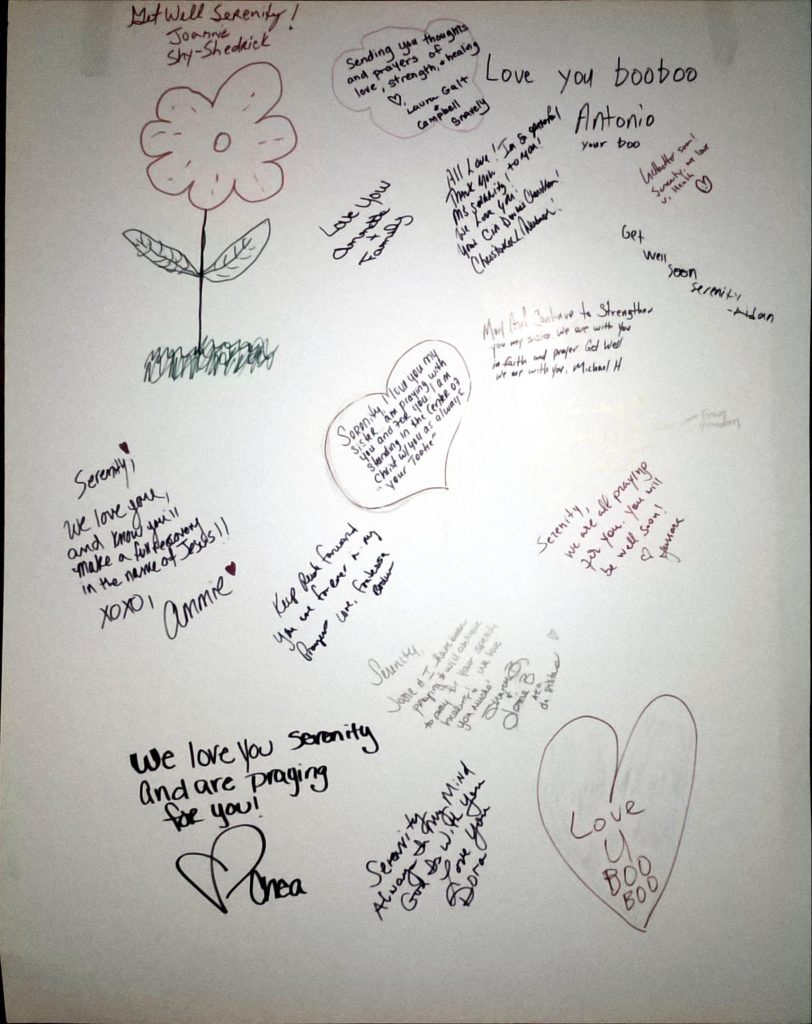 Get Well Serenity!
Joannie
Shy-Shedrick
Sending you thoughts
and prayers of
love, strength, & healing
♡, Laura Galt
Campbell
Snavely
Love you booboo
Antonio
your boo
All Love! I'm so
Thank You
Ms Serenity, to you!
We Love You!
Your
Love You
Annette
+
Family
soon!
Serenity, we love
u.
Get
Well
Soon
Serenity
-Aidan
May God Continue to Strengthen
you my sister we are with you
in faith and prayer Get Well
we are with you, Michael H
Serenity, Miss you my
Sister. I am praying with
you and for you. I am
standing in the center of
Christ w/you as always
"your Tootie"
Serenity,
We love you,
and know you'll
make a full recovery
in the name of Jesus!!
XOXO,
Annie
Serenity,
we are all praying
for you. you will
be well soon!
♡
Keep Push Forward
you are forever in my
Prayers Love,
Serenity,
& I have been
praying & will continue
to pray for your speedy
We love you
We love you Serenity
And are praying
for you!
Serenity
Always in my Mind
God is With you
Love you
Dora
Love
U
BOO
BOO